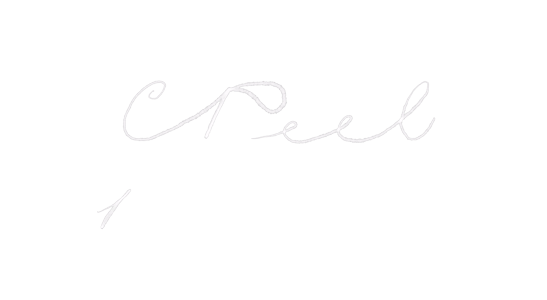 C Peel
1